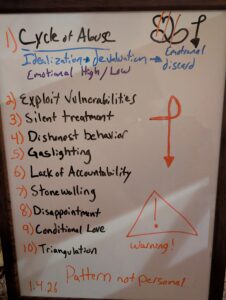 1) Cycle of Abuse
Idealization → devaluation → Emotional discard
Emotional High/Low
2) Exploit Vulnerabilities
3) Silent treatment
4) Dishonest behavior
5) Gaslighting
6) Lack of Accountability
7) Stonewalling
8) Disappointment
9) Conditional Love
10) Triangulation
!
Warning!
Pattern not personal
1.4.26